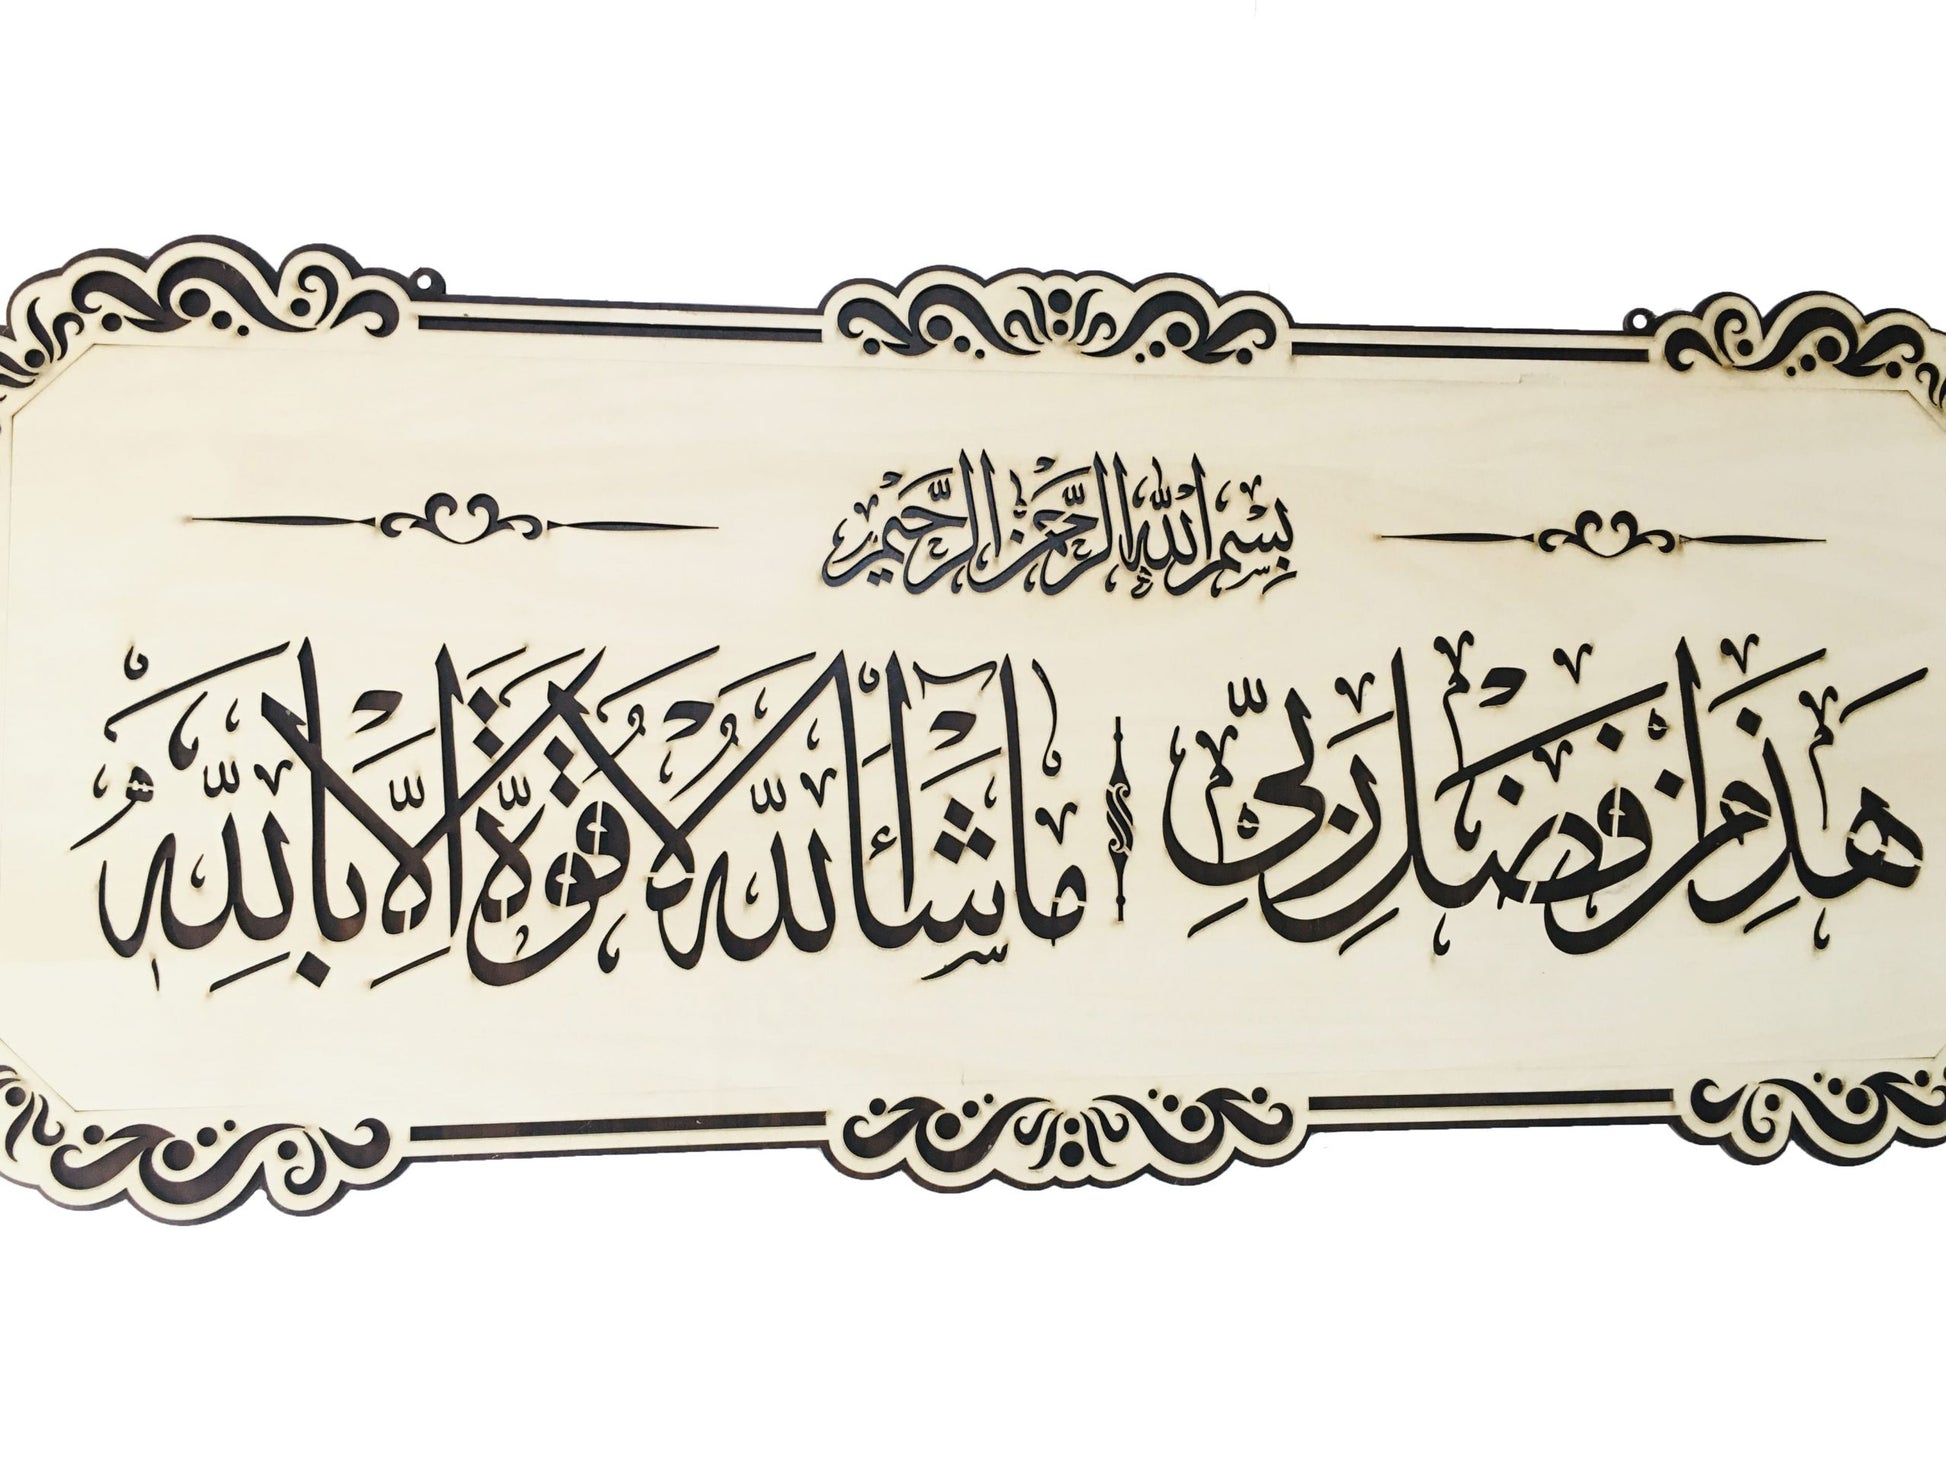 بِسْمِ اللهِ الرَّحْمٰنِ الرَّحِيْمِ
هَذَا مِنْ فَضْلِ رَبِّيْ مَا شَآءَ اللهُ لَا قُوَّةَ اِلَّا بِاللهِ